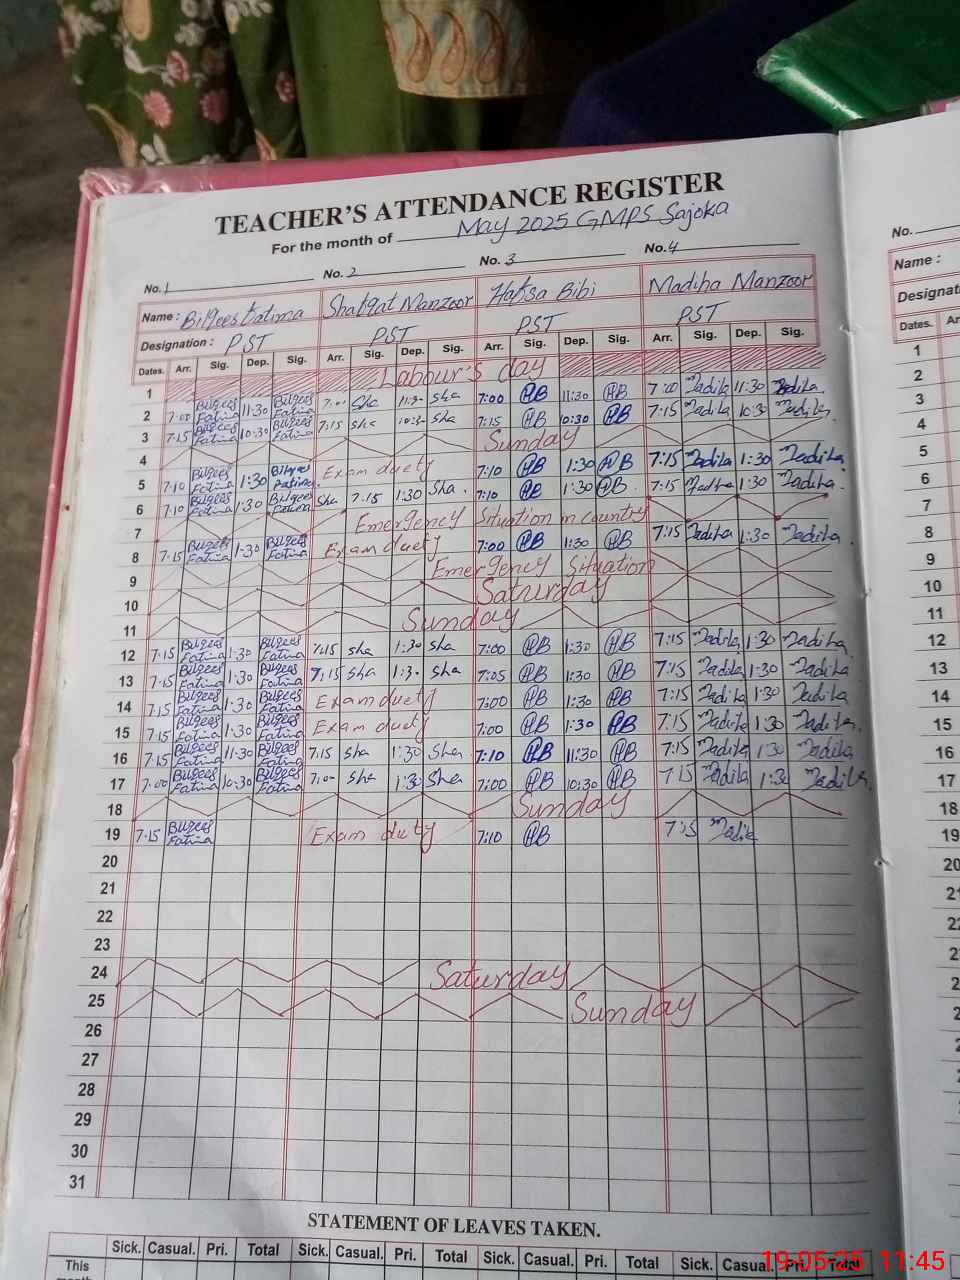 TEACHER'S ATTENDANCE REGISTER
For the month of May 2025 GMPS Sajoka
No. 1 No. 2 No. 3 No. 4 No.
Name : Bilqees Fatima Shafqat Manzoor Hafsa Bibi Madiha Manzoor Name :
Designation : PST PST PST PST
Dates. Arr. Sig. Dep. Sig. Arr. Sig. Dep. Sig. Arr. Sig. Dep. Sig. Arr. Sig. Dep. Sig. Dates.
1 Labour's day 1
2 7:00 Bilqees Fatima 11:30 Bilqees Fatima 7:00 Sha 11:30 Sha 7:00 HB 11:30 HB 7:00 Madiha 11:30 Madiha 2
3 7:15 Bilqees Fatima 10:30 Bilqees Fatima 7:15 Sha 10:30 Sha 7:15 HB 10:30 HB 7:15 Madiha 10:30 Madiha 3
4 Sunday 4
5 7:10 Bilqees Fatima 1:30 Bilqees Fatima Exam duety 7:10 HB 1:30 HB 7:15 Madiha 1:30 Madiha 5
6 7:10 Bilqees Fatima 1:30 Bilqees Fatima Sha 7:15 1:30 Sha 7:10 HB 1:30 HB 7:15 Madiha 1:30 Madiha 6
7 Emergency Situation in country 7
8 7:15 Bilqees Fatima 1:30 Bilqees Fatima Exam duety 7:00 HB 1:30 HB 7:15 Madiha 1:30 Madiha 8
9 Emergency Situation 9
10 Saturday 10
11 Sunday 11
12 7:15 Bilqees Fatima 1:30 Bilqees Fatima 7:15 Sha 1:30 Sha 7:00 HB 1:30 HB 7:15 Madiha 1:30 Madiha 12
13 7:15 Bilqees Fatima 1:30 Bilqees Fatima 7:15 Sha 1:30 Sha 7:05 HB 1:30 HB 7:15 Madiha 1:30 Madiha 13
14 7:15 Bilqees Fatima 1:30 Bilqees Fatima Exam duety 7:00 HB 1:30 HB 7:15 Madiha 1:30 Madiha 14
15 7:15 Bilqees Fatima 1:30 Bilqees Fatima Exam duety 7:00 HB 1:30 HB 7:15 Madiha 1:30 Madiha 15
16 7:15 Bilqees Fatima 11:30 Bilqees Fatima 7:15 Sha 1:30 Sha 7:10 HB 11:30 HB 7:15 Madiha 1:30 Madiha 16
17 7:00 Bilqees Fatima 10:30 Bilqees Fatima 7:00 Sha 1:30 Sha 7:00 HB 10:30 HB 7:15 Madiha 1:30 Madiha 17
18 Sunday 18
19 7:15 Bilqees Fatima Exam duety 7:10 HB 7:15 Madiha 19
20 20
21
22
23
24 Saturday
25 Sunday
26
27
28
29
30
31
STATEMENT OF LEAVES TAKEN.
Sick. Casual. Pri. Total Sick. Casual. Pri. Total Sick. Casual. Pri. Total Sick. Casual. Pri. Total
This
19-05-25 11:45